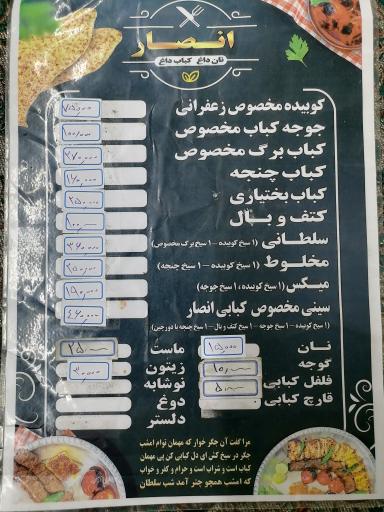 انصار
نان داغ کباب داغ
کوبیده مخصوص زعفرانی ۷۵,۰۰۰
جوجه کباب مخصوص ۱۰۰,۰۰۰
کباب برگ مخصوص ۲۷۰,۰۰۰
کباب چنجه
کباب بختیاری ۲۵۰,۰۰۰
کتف و بال ۱۰۰,۰۰۰
سلطانی (۱ سیخ کوبیده - ۱ سیخ برگ مخصوص) ۳۶۰,۰۰۰
مخلوط (۱ سیخ کوبیده - ۱ سیخ چنجه) ۲۵۰,۰۰۰
میکس (۱ سیخ کوبیده، ۱ سیخ جوجه) ۱۹۰,۰۰۰
سینی مخصوص کبابی انصار ۴۶۰,۰۰۰
(۱ سیخ کوبیده - ۱ سیخ جوجه - ۱ سیخ کتف و بال - ۱ سیخ چنجه با دورچین)
نان ۱۵,۰۰۰
گوجه ۱۰,۰۰۰
فلفل کبابی ۵,۰۰۰
قارچ کبابی
ماست ۲۵,۰۰۰
زیتون ۳۰,۰۰۰
نوشابه
دوغ
دلستر
مرا گفت آن جگر خوار که مهمان توام امشب
جگر در سیخ کش ای دل کبابی کن پی مهمان
کباب است و شراب است و حرام و کفر و خواب
که امشب همچو چتر آمد شب سلطان